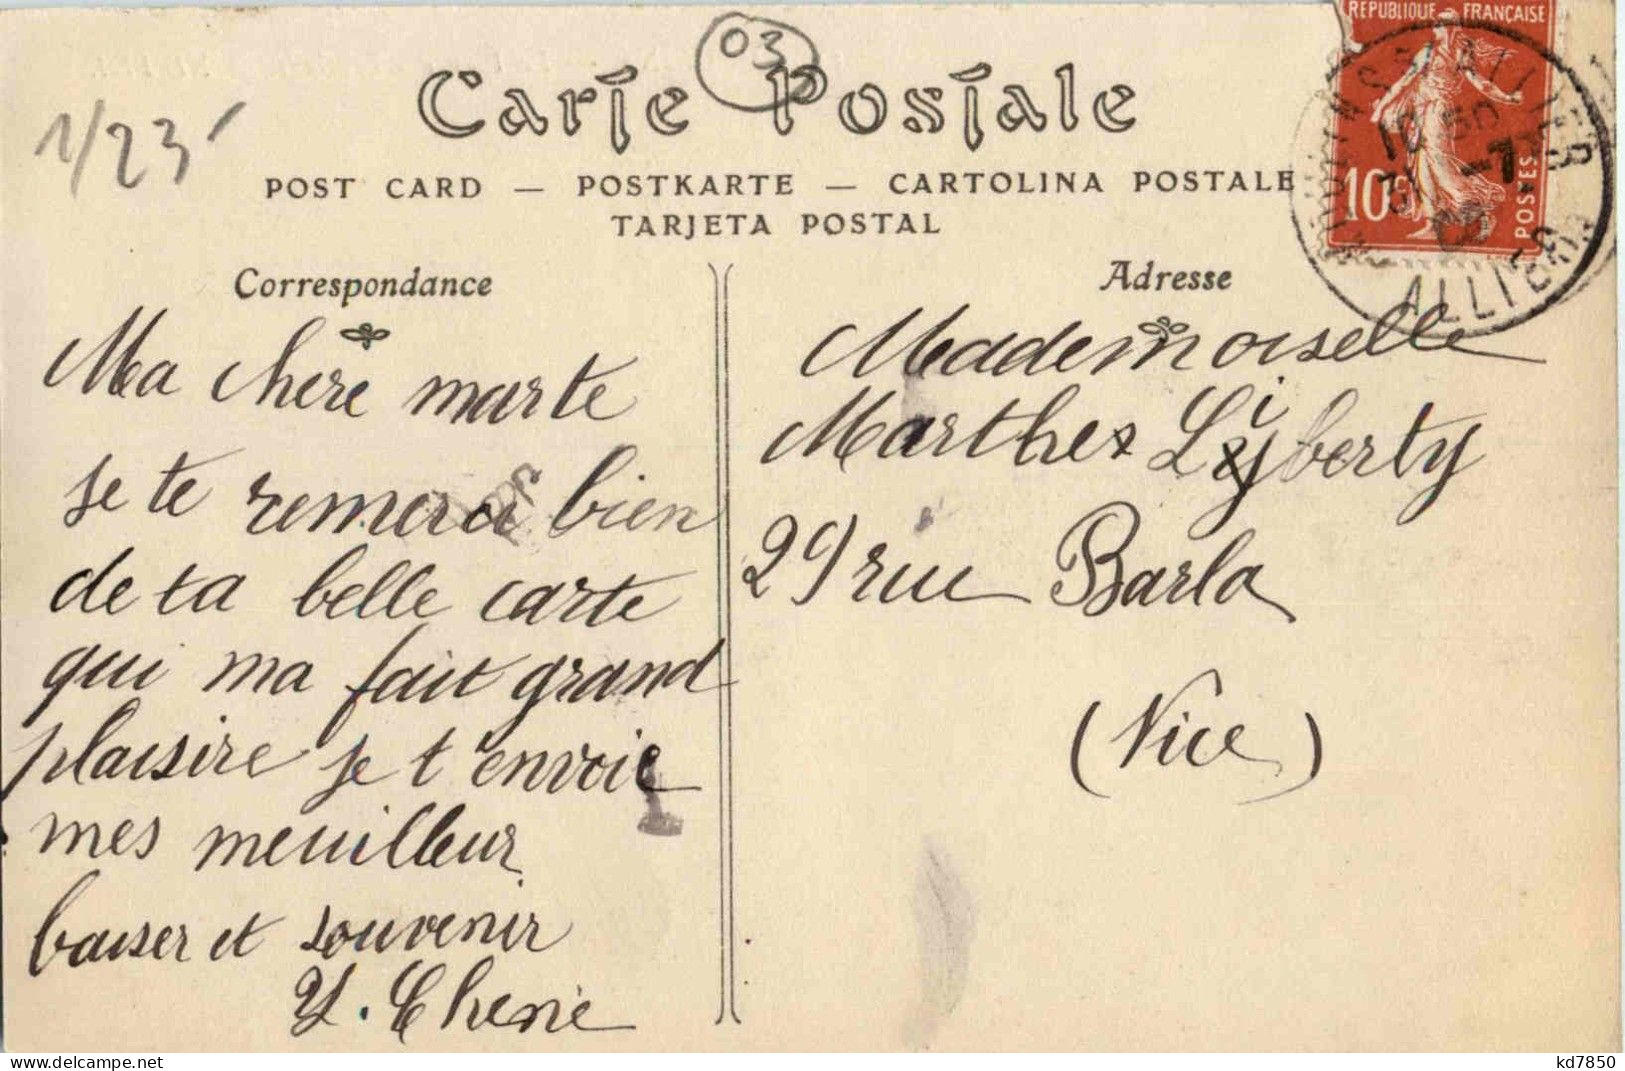 03
1/23
Carte Postale
POST CARD — POSTKARTE — CARTOLINA POSTALE
TARJETA POSTAL
REPUBLIQUE FRANÇAISE
10c
POSTES
MOULINS S/ ALLIER
10 50
31 -7
ALLIER
Correspondance
Ma chere marte
je te remerci bien
de ta belle carte
qui ma fait grand
plaisire je t'envoie
mes meuilleur
baiser et souvenir
Y. Chene
Adresse
Mademoiselle
Marthe Liberty
29 rue Barla
(Nice)
kd7850